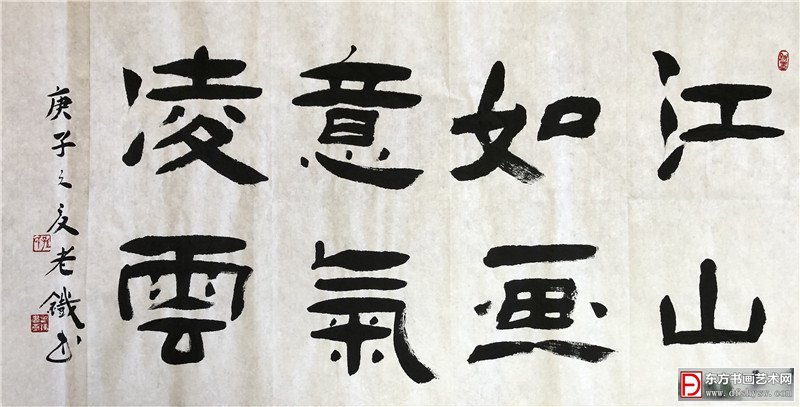 江山
如画
意氣
凌雲
庚子之夏老鐵书
东方书画艺术网
www.dfshysw.com